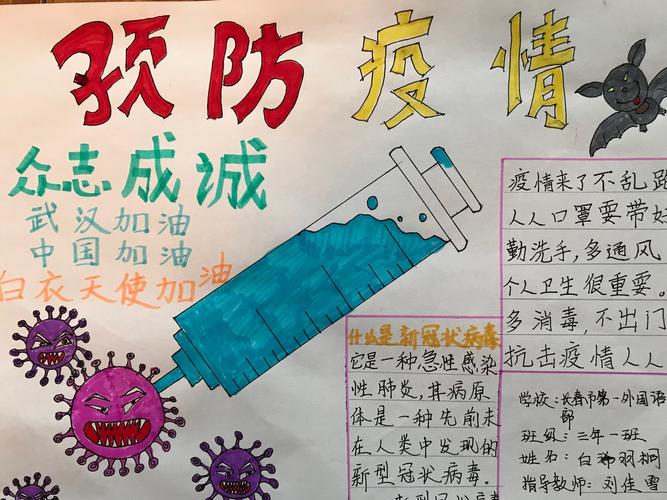 预防疫情
众志成诚
武汉加油
中国加油
白衣天使加油
疫情来了不乱跑
人人口罩要带好
勤洗手,多通风
个人卫生很重要。
多消毒,不出门
抗击疫情人人
什么是新冠状病毒
它是一种急性感染
性肺炎,其病原
体是一种先前未
在人类中发现的
新型冠状病毒.
学校:长春市第一外国语
部
班级:三年一班
姓名:白羽桐
指导教师:刘佳雪